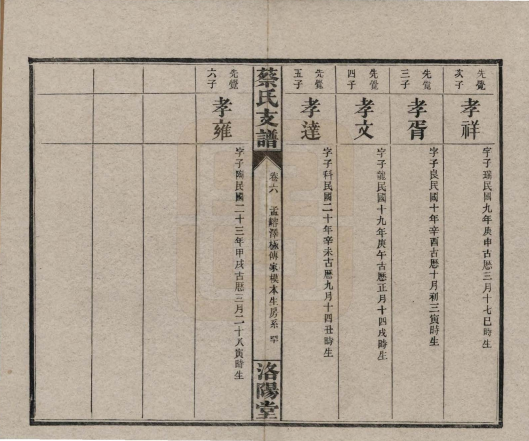 先覺次子
孝祥
字子瑞民國九年庚申古曆三月十七巳時生
先覺三子
孝胥
字子良民國十年辛酉古曆十月初三寅時生
先覺四子
孝文
字子龍民國十九年庚午古曆正月十四戌時生
先覺五子
孝達
字子科民國二十年辛未古曆九月十四丑時生
蔡氏支譜
卷六
孟 澤 傳家模本生房系
洛陽堂
先覺六子
孝雍
字子陶民國二十三年甲戌古曆三月二十八寅時生